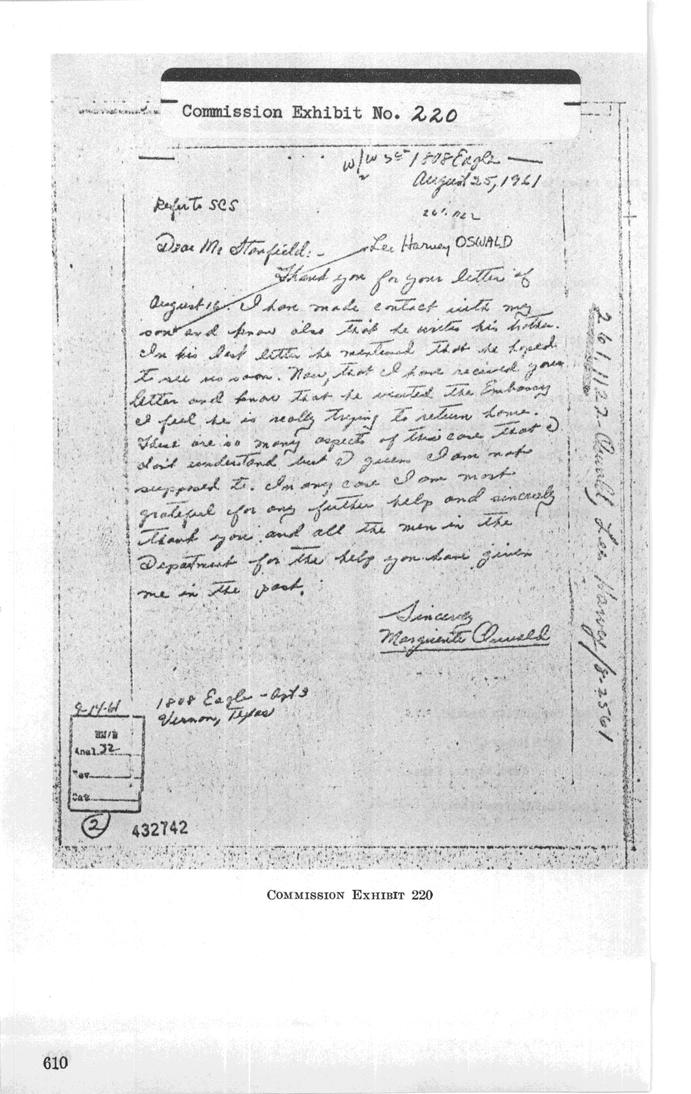 Commission Exhibit No. 220
1808 Eagle
August 25, 1961
Refer to SCS
Dear Mr Stanfield:-
Lee Harvey OSWALD
Thank you for your letter of
August 16. I have made contact with my
son and know also that he writes his brother.
In his last letter he mentioned that he hoped
to see us soon. Now, that I have received your
letter and know that he visited the Embassy
I feel he is really trying to return home.
There are so many aspects of this case that I
don't understand but I guess I am not
supposed to. In any case I am most
grateful for any further help and sincerely
thank you and all the men in the
Department for the help you have given
me in the past.
Sincerely
Marguerite Oswald
1808 Eagle - Apt 3
Vernon, Texas
261.1122-Oswald, Lee Harvey/8-2561
9-14-61
RM/R
Anal. 32
Rev.
Cat.
2
432742
COMMISSION EXHIBIT 220
610